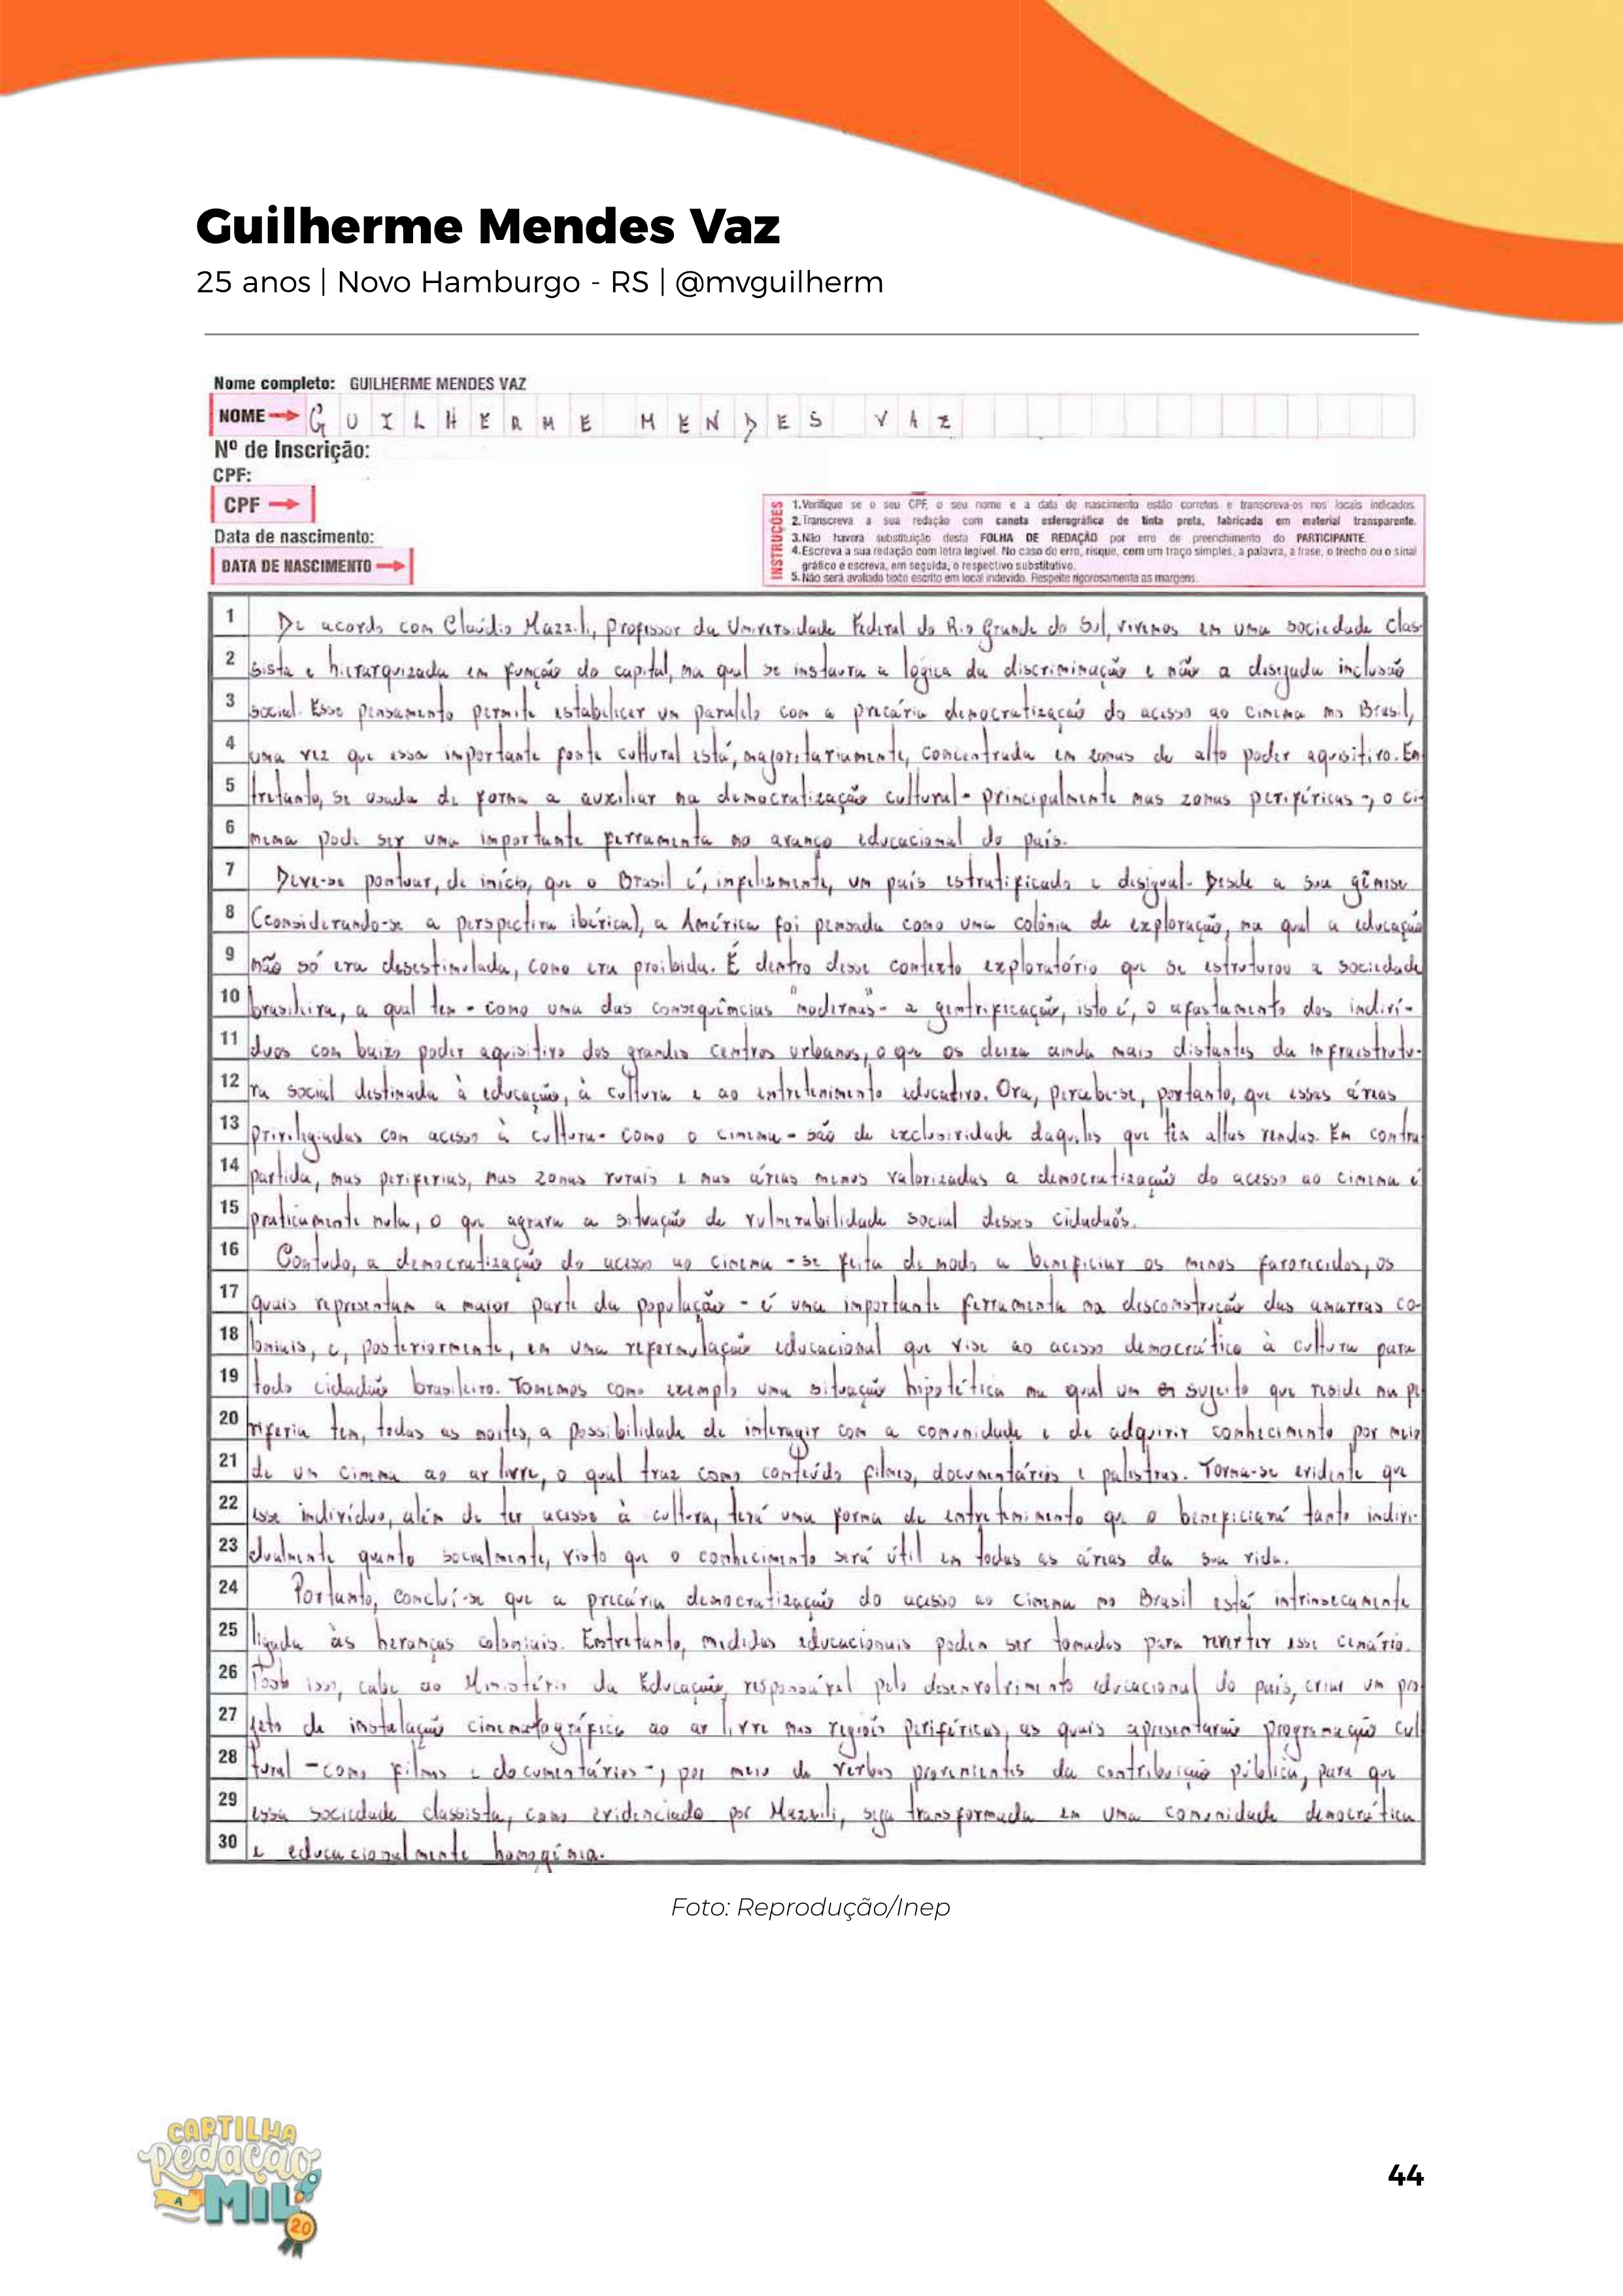 Guilherme Mendes Vaz
25 anos | Novo Hamburgo - RS | @mvguilherm
Nome completo: GUILHERME MENDES VAZ
NOME GUILHERME MENDES VAZ
Nº de Inscrição:
CPF:
CPF
Data de nascimento:
DATA DE NASCIMENTO
INSTRUÇÕES
1. Verifique se o seu CPF, o seu nome e a data de nascimento estão corretos e transcreva-os nos locais indicados.
2. Transcreva a sua redação com caneta esferográfica de tinta preta, fabricada em material transparente.
3. Não haverá substituição desta FOLHA DE REDAÇÃO por erro de preenchimento do PARTICIPANTE.
4. Escreva a sua redação com letra legível. No caso de erro, risque, com um traço simples, a palavra, a frase, o trecho ou o sinal
gráfico e escreva, em seguida, o respectivo substitutivo.
5. Não será avaliado texto escrito em local indevido. Respeite rigorosamente as margens.
1 De acordo com Claúdio Mazzili, professor da Universidade Federal do Rio Grande do Sul, vivemos em uma sociedade clas-
2 sista e hierarquizada em função do capital, na qual se instaura a lógica da discriminação e não a desejada inclusão
3 social. Esse pensamento permite estabelecer um paralelo com a precária democratização do acesso ao cinema no Brasil,
4 uma vez que essa importante fonte cultural está, majoritariamente, concentrada em zonas de alto poder aquisitivo. En
5 tretanto, se usada de forma a auxiliar na democratização cultural - principalmente nas zonas periféricas -, o ci-
6 nema pode ser uma importante ferramenta no avanço educacional do país.
7 Deve-se pontuar, de início, que o Brasil é, infelizmente, um país estratificado e desigual. Desde a sua gênese
8 (considerando-se a perspectiva ibérica), a América foi pensada como uma colônia de exploração, na qual a educação
9 não só era desestimulada, como era proibida. É dentro desse contexto exploratório que se estruturou a sociedade
10 brasileira, a qual tem - como uma das consequências "modernas" - a gentrificação, isto é, o afastamento dos indiví-
11 duos com baixo poder aquisitivo dos grandes centros urbanos, o que os deixa ainda mais distantes da infraestrutu-
12 ra social destinada à educação, à cultura e ao entretenimento educativo. Ora, percebe-se, portanto, que essas áreas
13 privilegiadas com acesso à cultura - como o cinema - são de exclusividade daqueles que têm altas rendas. Em contra
14 partida, nas periferias, nas zonas rurais e nas áreas menos valorizadas a democratização do acesso ao cinema é
15 praticamente nula, o que agrava a situação de vulnerabilidade social desses cidadãos.
16 Contudo, a democratização do acesso ao cinema - se feita de modo a beneficiar os menos favorecidos, os
17 quais representam a maior parte da população - é uma importante ferramenta na desconstrução das amarras co-
18 loniais, e, posteriormente, em uma reformulação educacional que vise ao acesso democrático à cultura para
19 todo cidadão brasileiro. Tomemos como exemplo uma situação hipotética na qual um sujeito que reside na pe
20 riferia tem, todas as noites, a possibilidade de interagir com a comunidade e de adquirir conhecimento por meio
21 de um cinema ao ar livre, o qual traz como conteúdo filmes, documentários e palestras. Torna-se evidente que
22 esse indivíduo, além de ter acesso à cultura, terá uma forma de entretenimento que o beneficiará tanto indivi-
23 dualmente quanto socialmente, visto que o conhecimento será útil em todas as áreas da sua vida.
24 Portanto, concluí-se que a precária democratização do acesso ao cinema no Brasil está intrinsecamente
25 ligada às heranças coloniais. Entretanto, medidas educacionais podem ser tomadas para reverter esse cenário.
26 Posto isso, cabe ao Ministério da Educação, responsável pelo desenvolvimento educacional do país, criar um pro
27 jeto de instalação cinematográfica ao ar livre nas regiões periféricas, as quais apresentarão programação cul
28 tural - como filmes e documentários -, por meio de verbas provenientes da contribuição pública, para que
29 essa sociedade classista, como evidenciado por Mazzili, seja transformada em uma comunidade democrática
30 e educacionalmente homogênea.
Foto: Reprodução/Inep
CARTILHA
Redação
A MIL
20
44